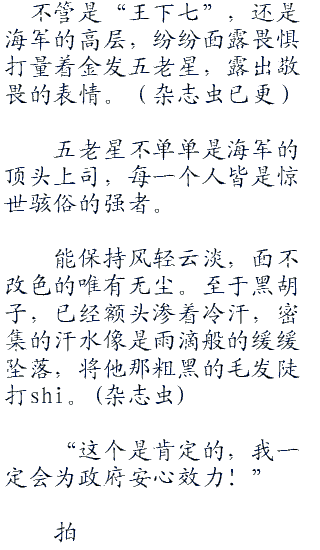 不管是“王下七”，还是
海军的高层，纷纷面露畏惧
打量着金发五老星，露出敬
畏的表情。（杂志虫已更）
五老星不单单是海军的
顶头上司，每一个人皆是惊
世骇俗的强者。
能保持风轻云淡，面不
改色的唯有无尘。至于黑胡
子，已经额头渗着冷汗，密
集的汗水像是雨滴般的缓缓
坠落，将他那粗黑的毛发陡
打shi。(杂志虫)
“这个是肯定的，我一
定会为政府安心效力！”
拍